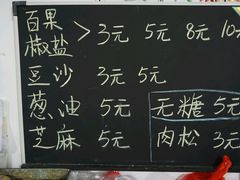 百果
椒盐 > 3元 5元 8元 10
豆沙 3元 5元
葱油 5元 无糖 5元
芝麻 5元 肉松 3元